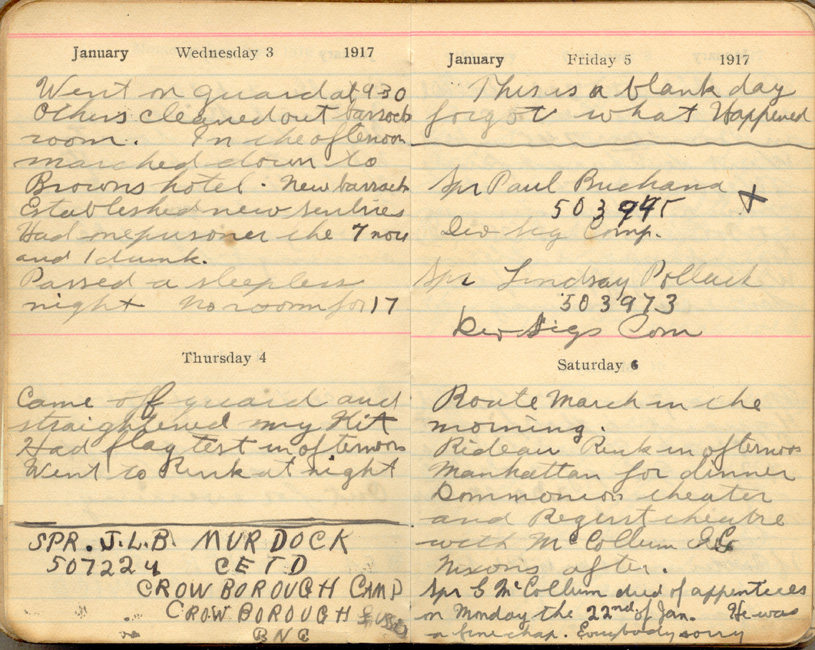 January Wednesday 3 1917
Went on guard at 9 30
Others cleaned out barrack
room. In the afternoon
marched down to
Browns hotel. New barrack
Established new sentries
Had one prisoner the 7 nov
and 1 drunk.
Passed a sleepless
night no room for 17
Thursday 4
Came off guard and
straightened my Kit
Had flag test in afternoon
Went to Rink at night
SPR. J.L.B. MURDOCK
507224 CETD
CROWBOROUGH CAMP
CROWBOROUGH
ENG
January Friday 5 1917
This is a blank day
forgot what Happened
Spr Paul Buchand
Div Sig Comp.
Spr Lindsay Pollack
503973
Div Sigs Com
Saturday 6
Route March in the
morning.
Rideau Rink in afternoon
Manhattan for dinner
Dommonion theater
and Regent theatre
with McCollum
Nixons after.
Spr G McCollum died of appentices
on Monday the 22nd of Jan. He was
a fine chap. Everybody sorry